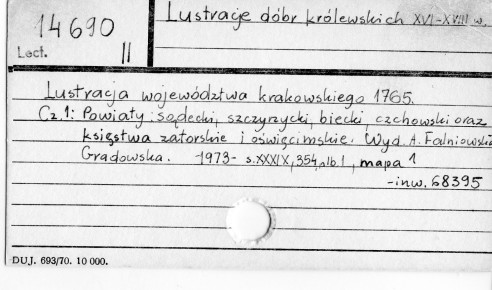 14690
Lect. II
Lustracje dóbr królewskich XVI-XVIII w.
Lustracja województwa krakowskiego 1765.
Cz.1: Powiaty: sądecki, szczyrzycki, biecki, czchowski oraz
księstwa zatorskie i oświęcimskie. Wyd. A. Falniowska
Gradowska. 1973- s.XXXIX, 354, nlb.1, mapa 1
-inw. 68395
DUJ. 693/70. 10 000.